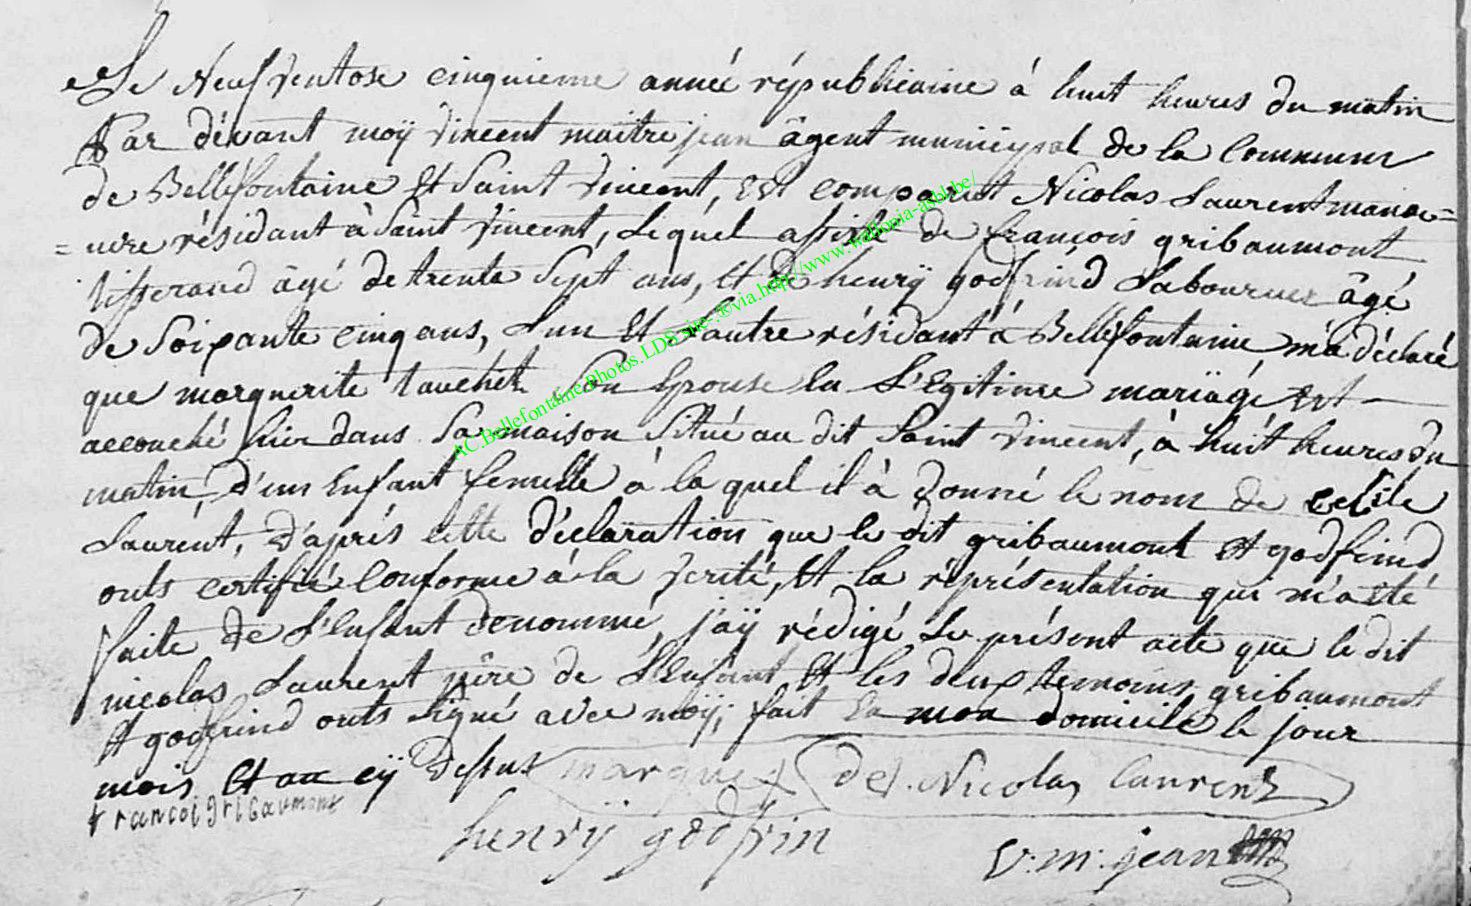 Le Neuf Ventose cinquieme année républicaine à huit heures du matin
Par dévant moÿ Vincent maitrejean âgent municipal de la Commune
de Bellefontaine Et Saint Vincent, Est comparut Nicolas Laurent manoe=
=uvre résidant à Saint Vincent, Lequel assisté de françois gribaumont
tisserand âgé de trente Sept ans, Et de henrÿ godfrind Laboureur âgé
de Soixante cinq ans, L'un Et L'autre résidant à Bellefontaine m'a déclaré
que marguerite tauchét Son Epouse En L'Egitime mariage Est
accouché hier dans Sa maison Situé au dit Saint Vincent, à huit heures du
matin, D'une Enfant femelle à la quel il à Donné le nom de celile
Laurént, D'aprés cette Déclaration que le dit gribaumont Et godfrind
onts certifié Conforme à la Verité, Et la réprésentation qui m'a Eté
faite de L'Enfant denommé, j'aÿ rédigé Le présent acte que le dit
nicolas Laurent pére de L'Enfant Et les deux temoins gribaumont
Et godfrind onts Signé avec moÿ; fait En mon domicile le jour
mois Et an cÿ Dessus marque x de Nicolas laurent
françoi gribaumont
henrÿ godfrin
V: m: jean
AC.Bellefontaine.Photos.LDS site ®via.http://www.wallonia-asbl.be/